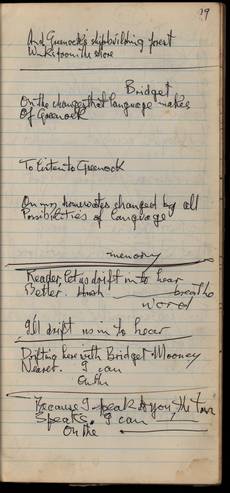 19
And Greenock's shipbuilding forest
Winks from the shore
Bridget
On the changes that language makes
Of Greenock
To listen to Greenock
On my homewates changed by all
Possibilities of language
memory
Reader, let us drift in to hear
Better. Hush breathe
word
I'll drift us in to hear
Drifting here with Bridget Mooney
Nearest. I can
On the
Because I speak to you, the Town
Speaks. I can
On the